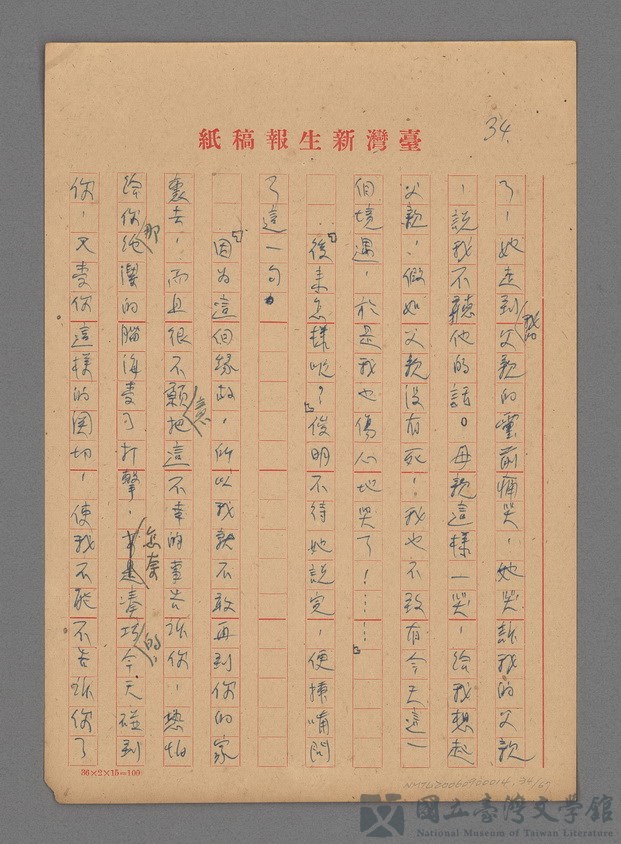 34.
臺灣新生報稿紙
了，她走到我的父親的靈前痛哭，她哭訴我的父親
，說我不聽他的話。母親這樣一哭，給我想起
父親，假如父親沒有死，我也不致有今天這一
個境遇，於是我也傷心地哭了！……」
「後來怎樣呢？」俊明不待她說完，便插嘴問
了這一句。
「因為這個緣故，所以我就不敢再到你的家
裏去，而且很不願意把這不幸的事告訴你，恐怕
給你那純潔的腦海受了打擊，怎奈湊巧的今天碰到
你，又受你這樣的關切，使我不能不告訴你了
36×2×15=100
國立臺灣文學館
National Museum of Taiwan Literature